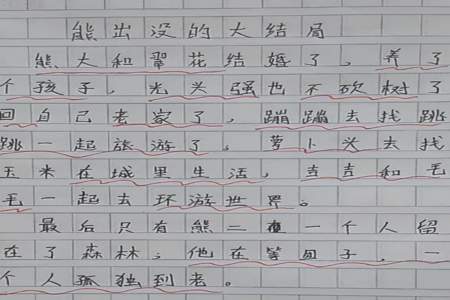 熊出没的大结局
熊大和翠花结婚了，养了
个孩子，光头强也不砍树了
回自己老家了，蹦蹦去找跳
跳一起旅游了，萝卜头去找
玉米在城里生活，吉吉和毛
毛一起去环游世界。
最后只有熊二一个人留
在了森林，他在等团子，一
个人孤独到老。